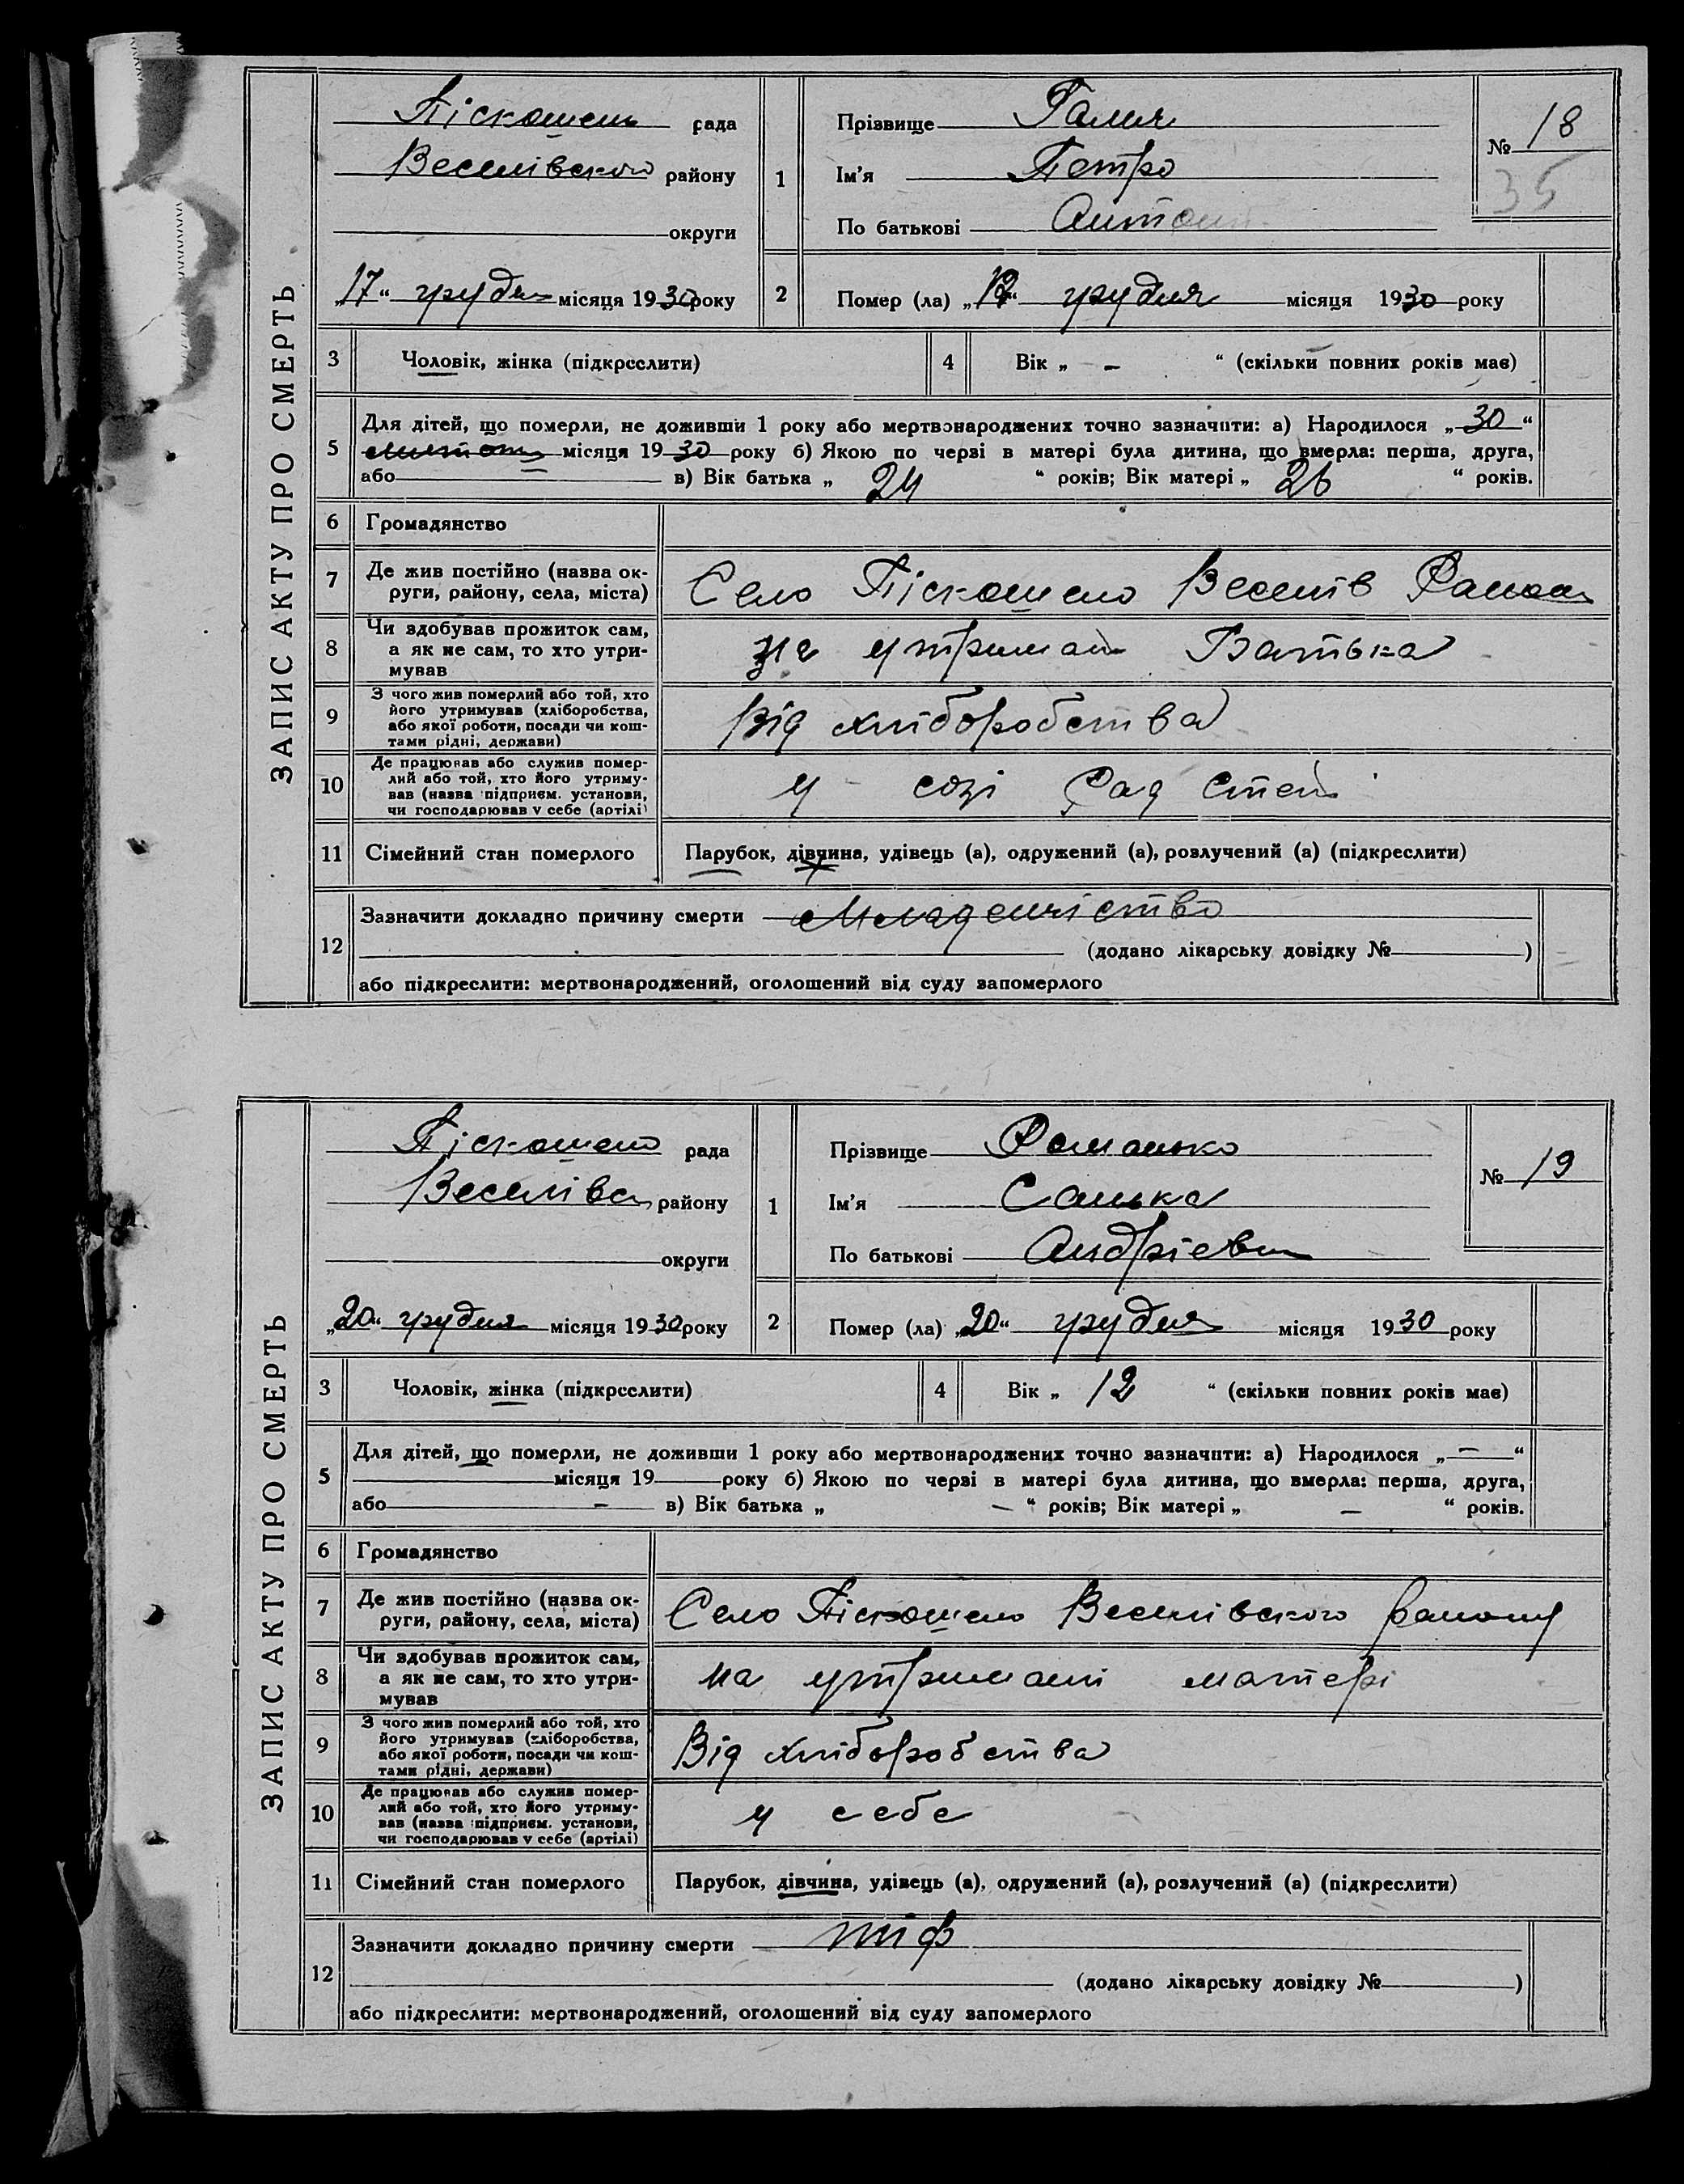 ЗАПИС АКТУ ПРО СМЕРТЬ
Піскошено рада
Веселівского району
округи
„17“ грудня місяця 1930 року
1
Прізвище Галич
Ім'я Петро
По батькові Антон
№ 18
35
2
Помер (ла) „17“ грудня місяця 1930 року
3 Чоловік, жінка (підкреслити)
4 Вік „ – “ (скільки повних років має)
5 Для дітей, що померли, не доживши 1 року або мертвонароджених точно зазначити: а) Народилося „30“
місяця 1930 року б) Якою по черзі в матері була дитина, що вмерла: перша, друга,
або в) Вік батька „ 24 “ років; Вік матері „ 26 “ років.
6 Громадянство
7 Де жив постійно (назва округи, району, села, міста) Село Піскошено Веселів Району
8 Чи здобував прожиток сам, а як не сам, то хто утримував на утриман Батька
9 З чого жив померлий або той, хто його утримував (хліборобства, або якої роботи, посади чи коштами рідні, держави) Від хліборобства
10 Де працював або служив померлий або той, хто його утримував (назва підприєм. установи, чи господарював у себе (артілі) у созі Рад Степ
11 Сімейний стан померлого Парубок, дівчина, удівець (а), одружений (а), розлучений (а) (підкреслити)
12 Зазначити докладно причину смерти Младенчіство
(додано лікарську довідку № )
або підкреслити: мертвонароджений, оголошений від суду запомерлого
ЗАПИС АКТУ ПРО СМЕРТЬ
Піскошено рада
Веселівск району
округи
„20“ грудня місяця 1930 року
1
Прізвище Романько
Ім'я Санька
По батькові Андрієвн
№ 19
2
Помер (ла) „20“ грудня місяця 1930 року
3 Чоловік, жінка (підкреслити)
4 Вік „ 12 “ (скільки повних років має)
5 Для дітей, що померли, не доживши 1 року або мертвонароджених точно зазначити: а) Народилося „ – “
місяця 19 року б) Якою по черзі в матері була дитина, що вмерла: перша, друга,
або – в) Вік батька „ – “ років; Вік матері „ – “ років.
6 Громадянство
7 Де жив постійно (назва округи, району, села, міста) Село Піскошено Веселівского району
8 Чи здобував прожиток сам, а як не сам, то хто утримував на утримані матері
9 З чого жив померлий або той, хто його утримував (хліборобства, або якої роботи, посади чи коштами рідні, держави) Від хліборобства
10 Де працював або служив померлий або той, хто його утримував (назва підприєм. установи, чи господарював у себе (артілі) у себе
11 Сімейний стан померлого Парубок, дівчина, удівець (а), одружений (а), розлучений (а) (підкреслити)
12 Зазначити докладно причину смерти тіф
(додано лікарську довідку № )
або підкреслити: мертвонароджений, оголошений від суду запомерлого